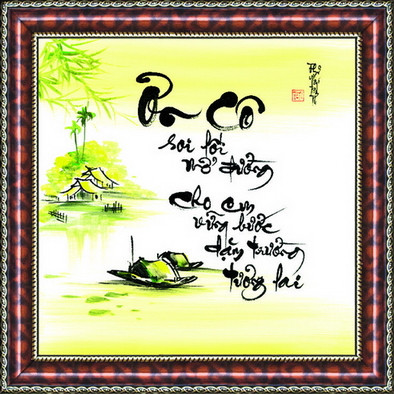 Ơn Cô
soi lối
mở đường
cho em
vững bước
dặm trường
tương lai